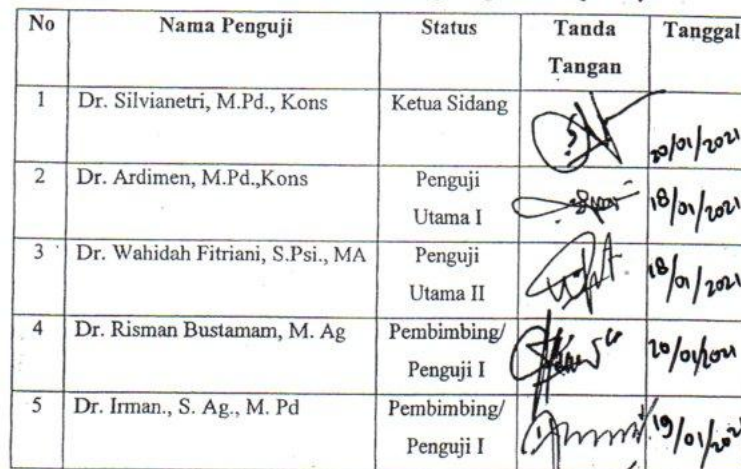 No Nama Penguji Status Tanda Tangan Tanggal
1 Dr. Silvianetri, M.Pd., Kons Ketua Sidang 20/01/2021
2 Dr. Ardimen, M.Pd.,Kons Penguji Utama I 18/01/2021
3 Dr. Wahidah Fitriani, S.Psi., MA Penguji Utama II 18/01/2021
4 Dr. Risman Bustamam, M. Ag Pembimbing/ Penguji I 20/01/2021
5 Dr. Irman., S. Ag., M. Pd Pembimbing/ Penguji I 19/01/2021